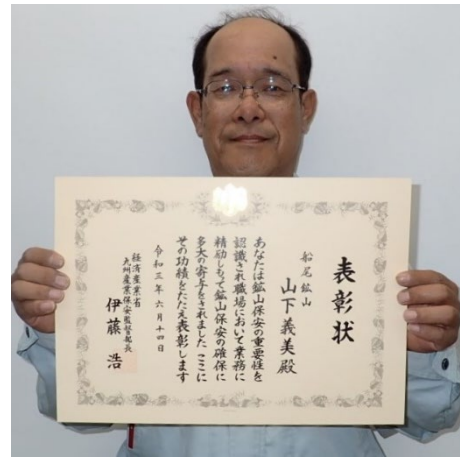 表彰状
船尾鉱山
山下義美殿
あなたは鉱山保安の重要性を
認識され職場において業務に
精励しもって鉱山保安の確保に
多大の寄与をされました ここに
その功績をたたえ表彰します
令和三年六月十四日
経済産業省
九州産業保安監督部長
伊藤 浩